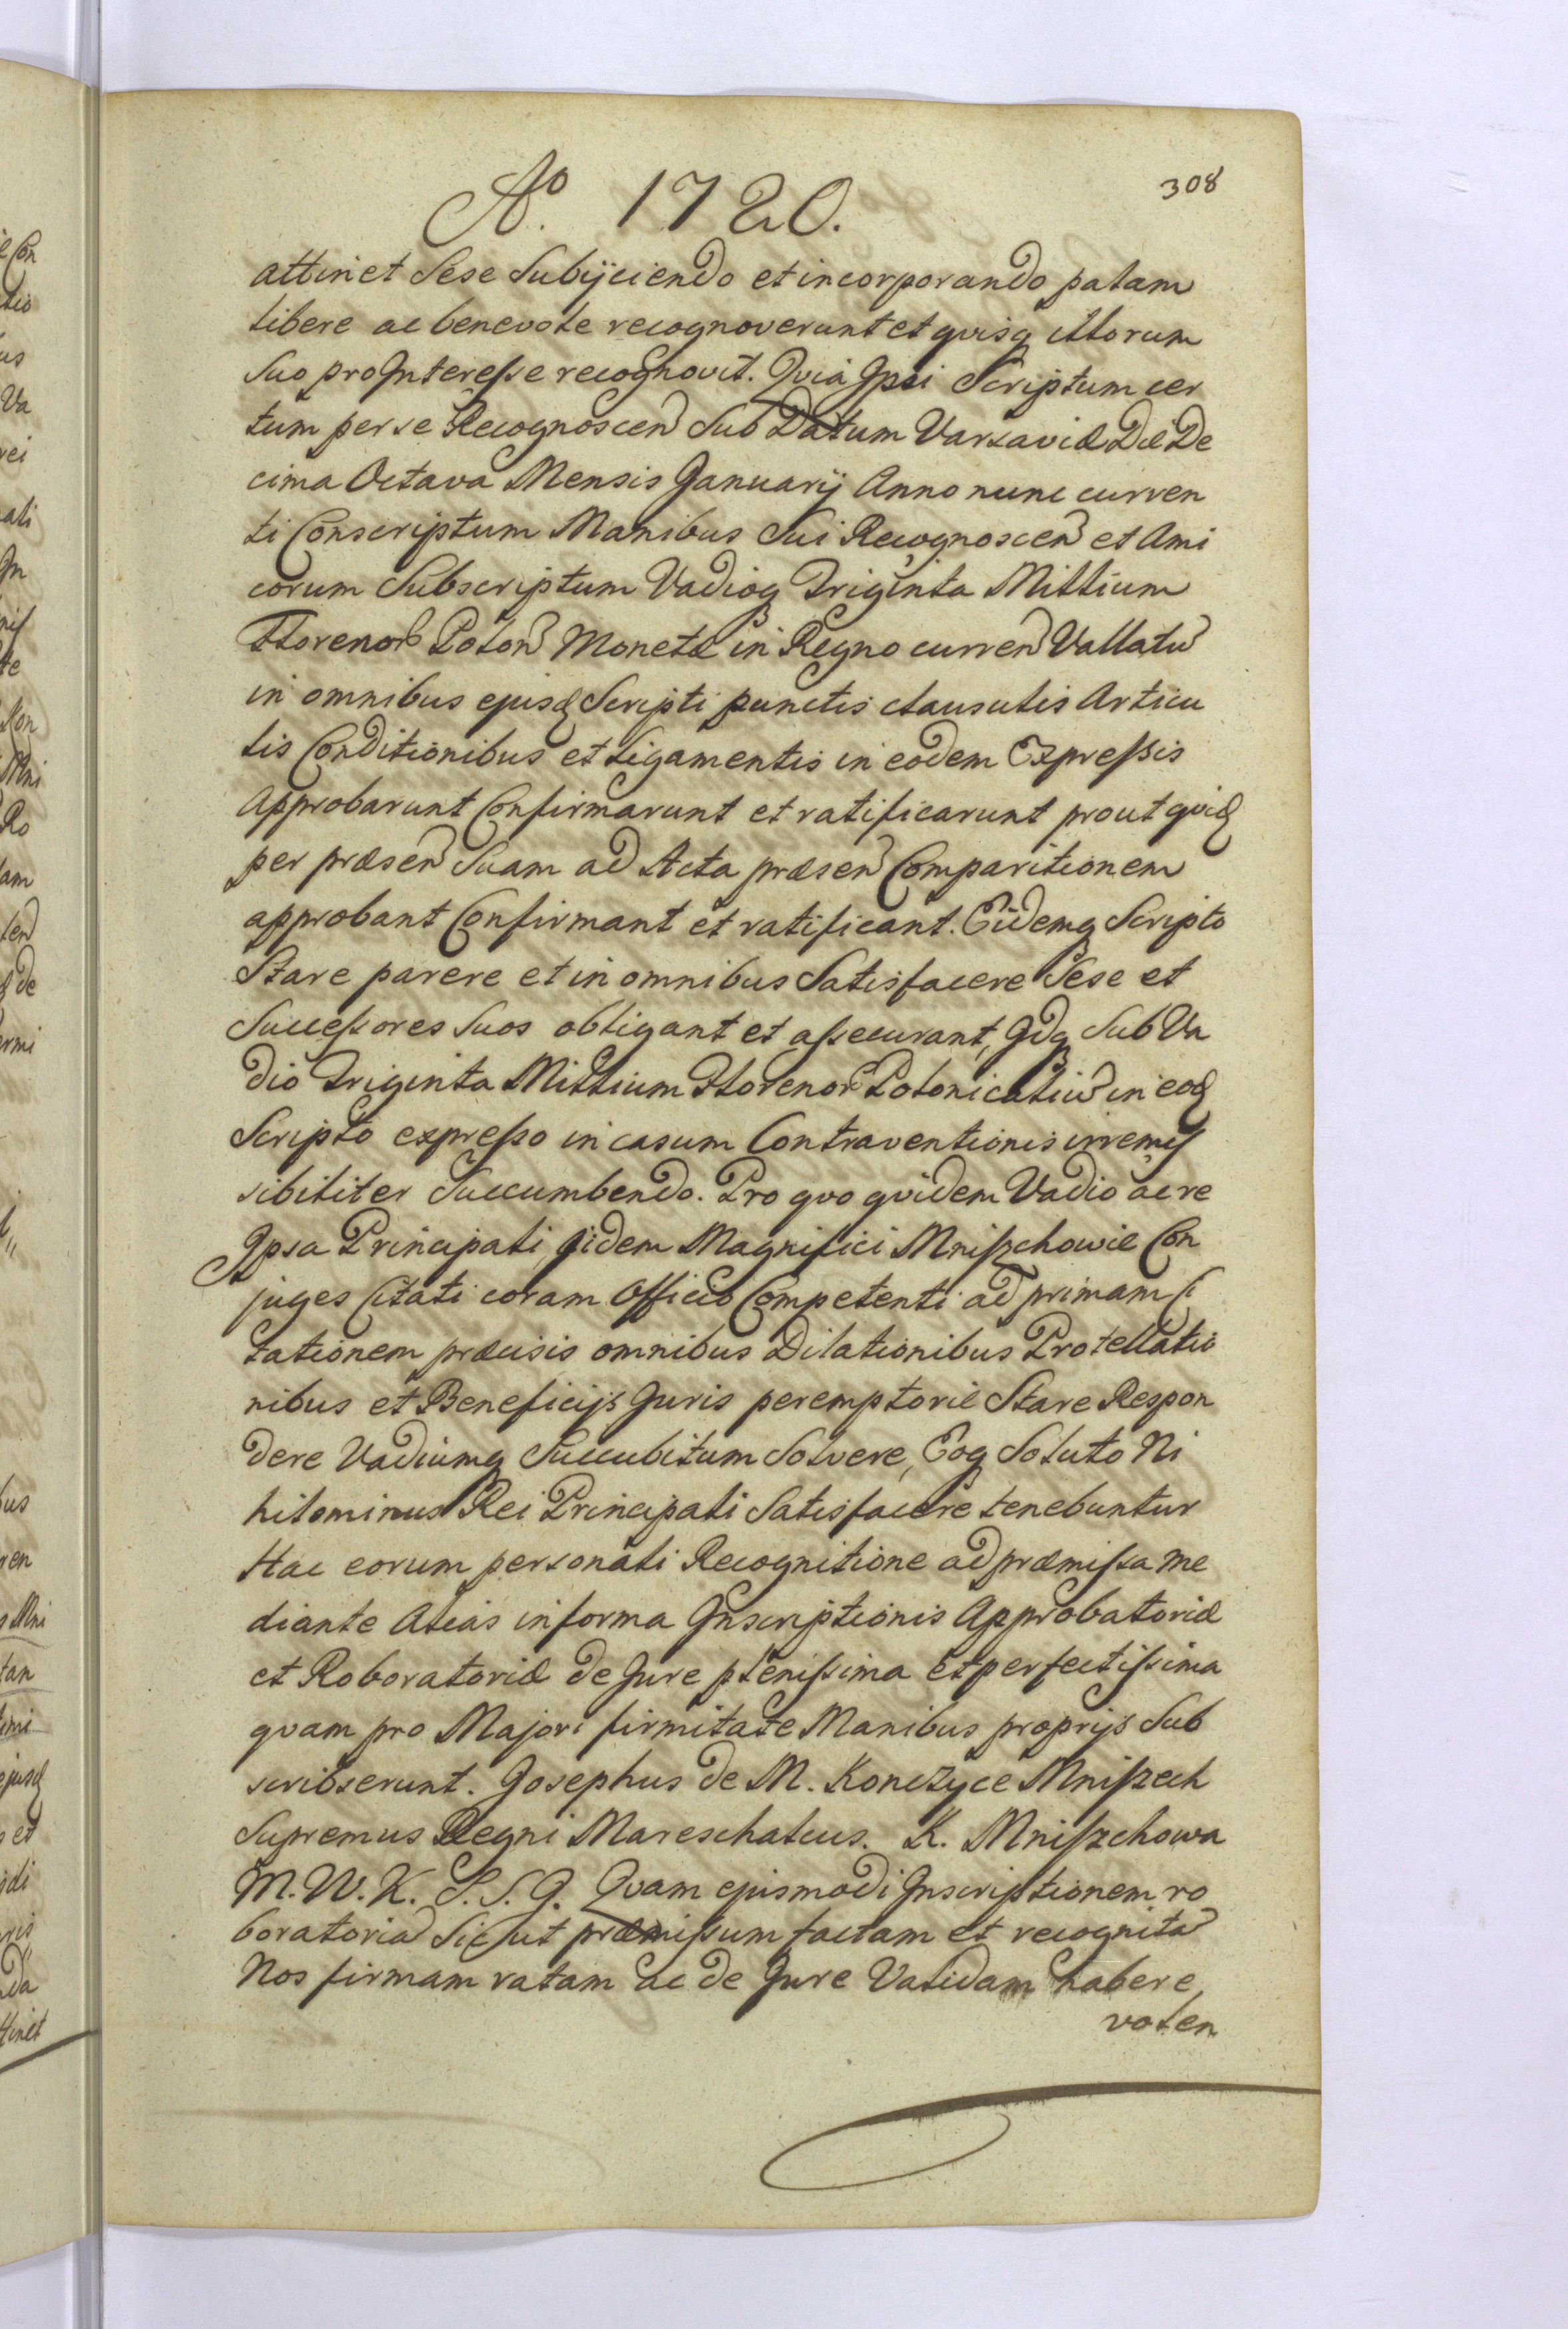 308
Ao. 1720.
attinet Sese Subijciendo et incorporando palam
libere ac benevole recognoverunt et qvisq illorum
Suo pro Interesse recognovit. Qvia Ipsi Scriptum cer
tum per se Recognoscen Sub Datum Varsaviæ Die De
cima Octava Mensis Januarij Anno nunc curren
ti Conscriptum Manibus Sui Recognoscen et Ami
corum Subscriptum Vadioq Triginta Millium
Florenor Polon Monetæ in Regno curren Vallatu
in omnibus ejusd Scripti punctis clausulis Articu
lis Conditionibus et Ligamentis in eodem Expressis
Approbarunt Confirmarunt et ratificarunt prout qvid
per præsen Suam ad Acta præsen Comparitionem
approbant Confirmant et ratificant. Eidemq Scripto
Stare parere et in omnibus Satisfacere Sese et
Successores Suos obligant et assecurant, Idq Sub Va
dio Triginta Millium Florenor Polonicaliu in eod
Scripto expresso in casum Contraventionis irremis
sibiliter Succumbendo. Pro qvo qvidem Vadio ac re
Ipsa Principali iidem Magnifici Mniszchowie Con
juges Citati coram Officio Competenti ad primam Ci
tationem præcisis omnibus Dilationibus Protellatio
nibus et Beneficijs Juris peremptorie Stare Respon
dere Vadiumq Succubitum Solvere, Eoq Soluto Ni
hilominus Rei Principali Satisfacere tenebuntur
Hac eorum personali Recognitione ad præmissa me
diante Alias in forma Inscriptionis Approbatoriæ
et Roboratoriæ de Jure plenissima et perfectissima
qvam pro Majori firmitate Manibus proprijs Sub
scribserunt. Josephus de M. Konczyce Mniszech
Supremus Regni Mareschalcus. K. Mniszchowa
M. W. K. S. S. J. Qvam ejusmodi Inscriptionem ro
boratoria Sic ut præmissum factam et recognita
Nos firmam ratam ac de Jure Validam habere
volen